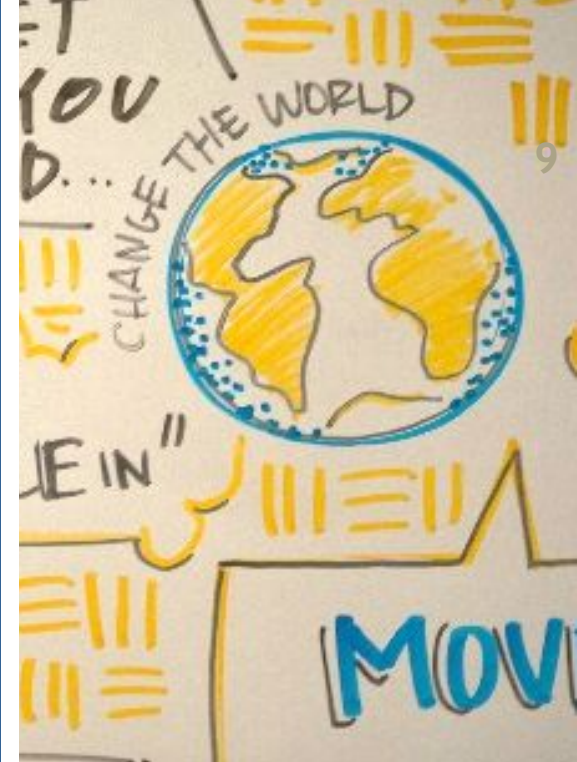 YOU
D...
CHANGE THE WORLD
9
IN"